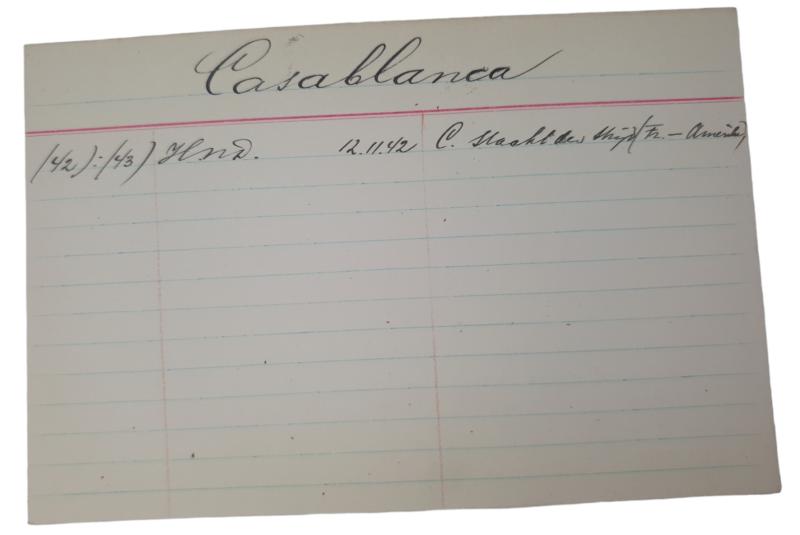 Casablanca
(42):(43) HND. 12.11.42 C. staakt den strijd (Fr. – Amerika)